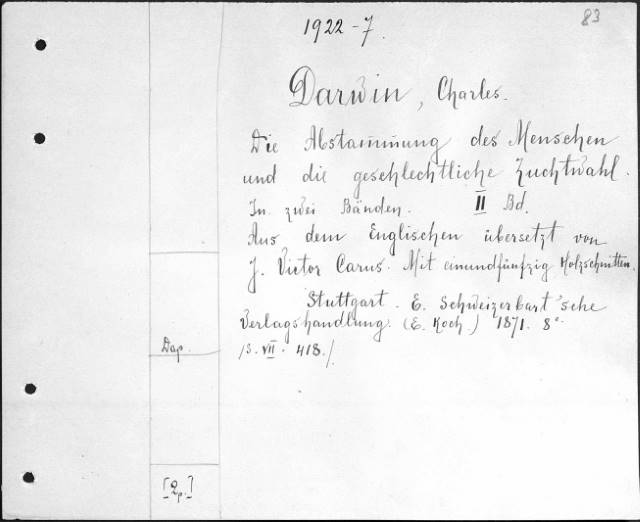 83
1922-7.
Darwin, Charles.
Die Abstammung des Menschen
und die geschlechtliche Zuchtwahl.
In zwei Bänden. II Bd.
Aus dem Englischen übersetzt von
J. Victor Carus. Mit einundfünfzig Holzschnitten.
Stuttgart. E. Schweizerbart'sche
Verlagshandlung. (E. Koch.) 1871. 8°.
/S. VII. 418./
Dap.
[2p.]